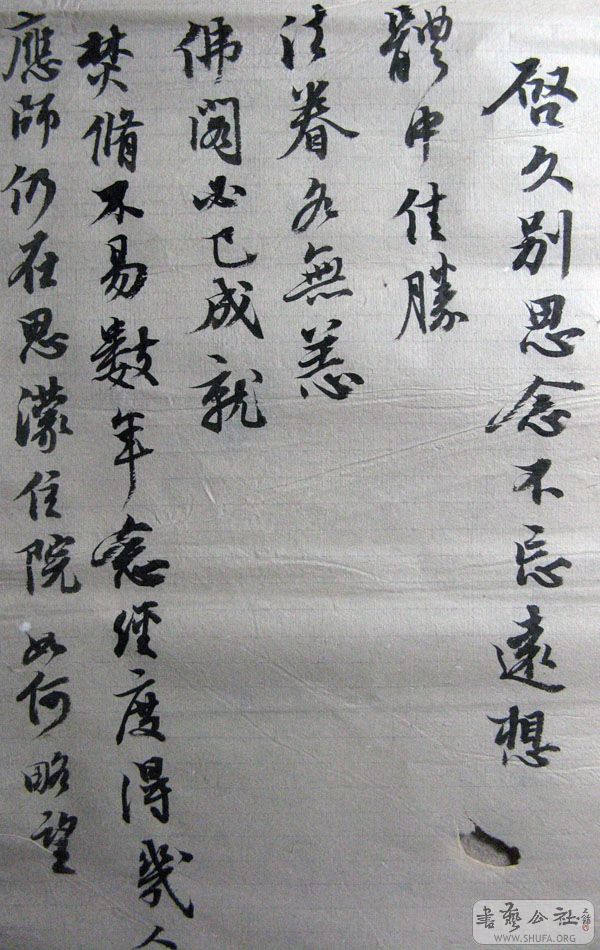 啓久別思念不忘遠想
體中佳勝
法眷各無恙
佛閣必已成就
焚脩不易數年念經度得幾人
應師仍在思濛住院如何略望
書藝公社
WWW.SHUFA.ORG